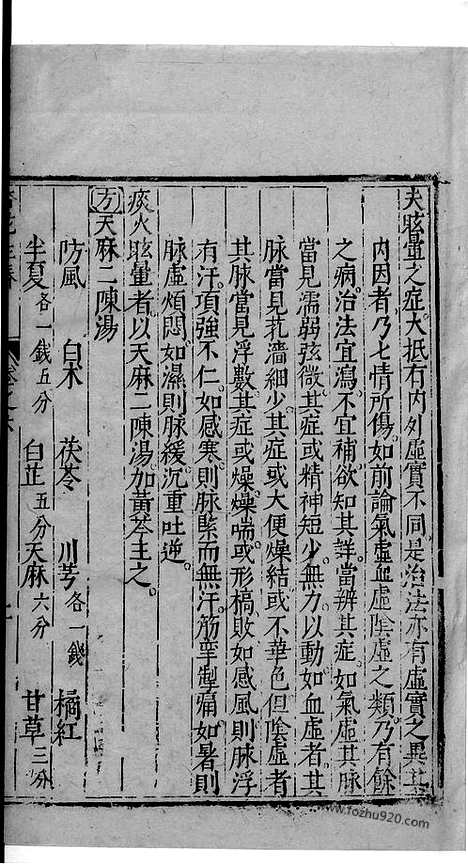 夫眩暈之症大抵有內外虛實不同是治法亦有虛實之異其
內因者乃七情所傷如前論氣虛血虛陰虛之類乃有餘
之病治法宜瀉不宜補欲知其詳當辨其症如氣虛其脉
當見濡弱弦微其症或精神短少無力以動如血虛者其
脉當見芤濇細少其症或大便燥結或不華色但陰虛者
其脉當見浮數其症或燥燥喘或形槁敗如感風則脉浮
有汗項強不仁如感寒則脉緊而無汗筋攣掣痛如暑則
脉虛煩悶如濕則脉緩沉重吐逆
痰火眩暈者以天麻二陳湯加黃芩主之
方天麻二陳湯
防風 白术 茯苓 川芎各一錢 橘紅
半夏各一錢五分 白芷五分 天麻六分 甘草三分
www.fozhu920.com